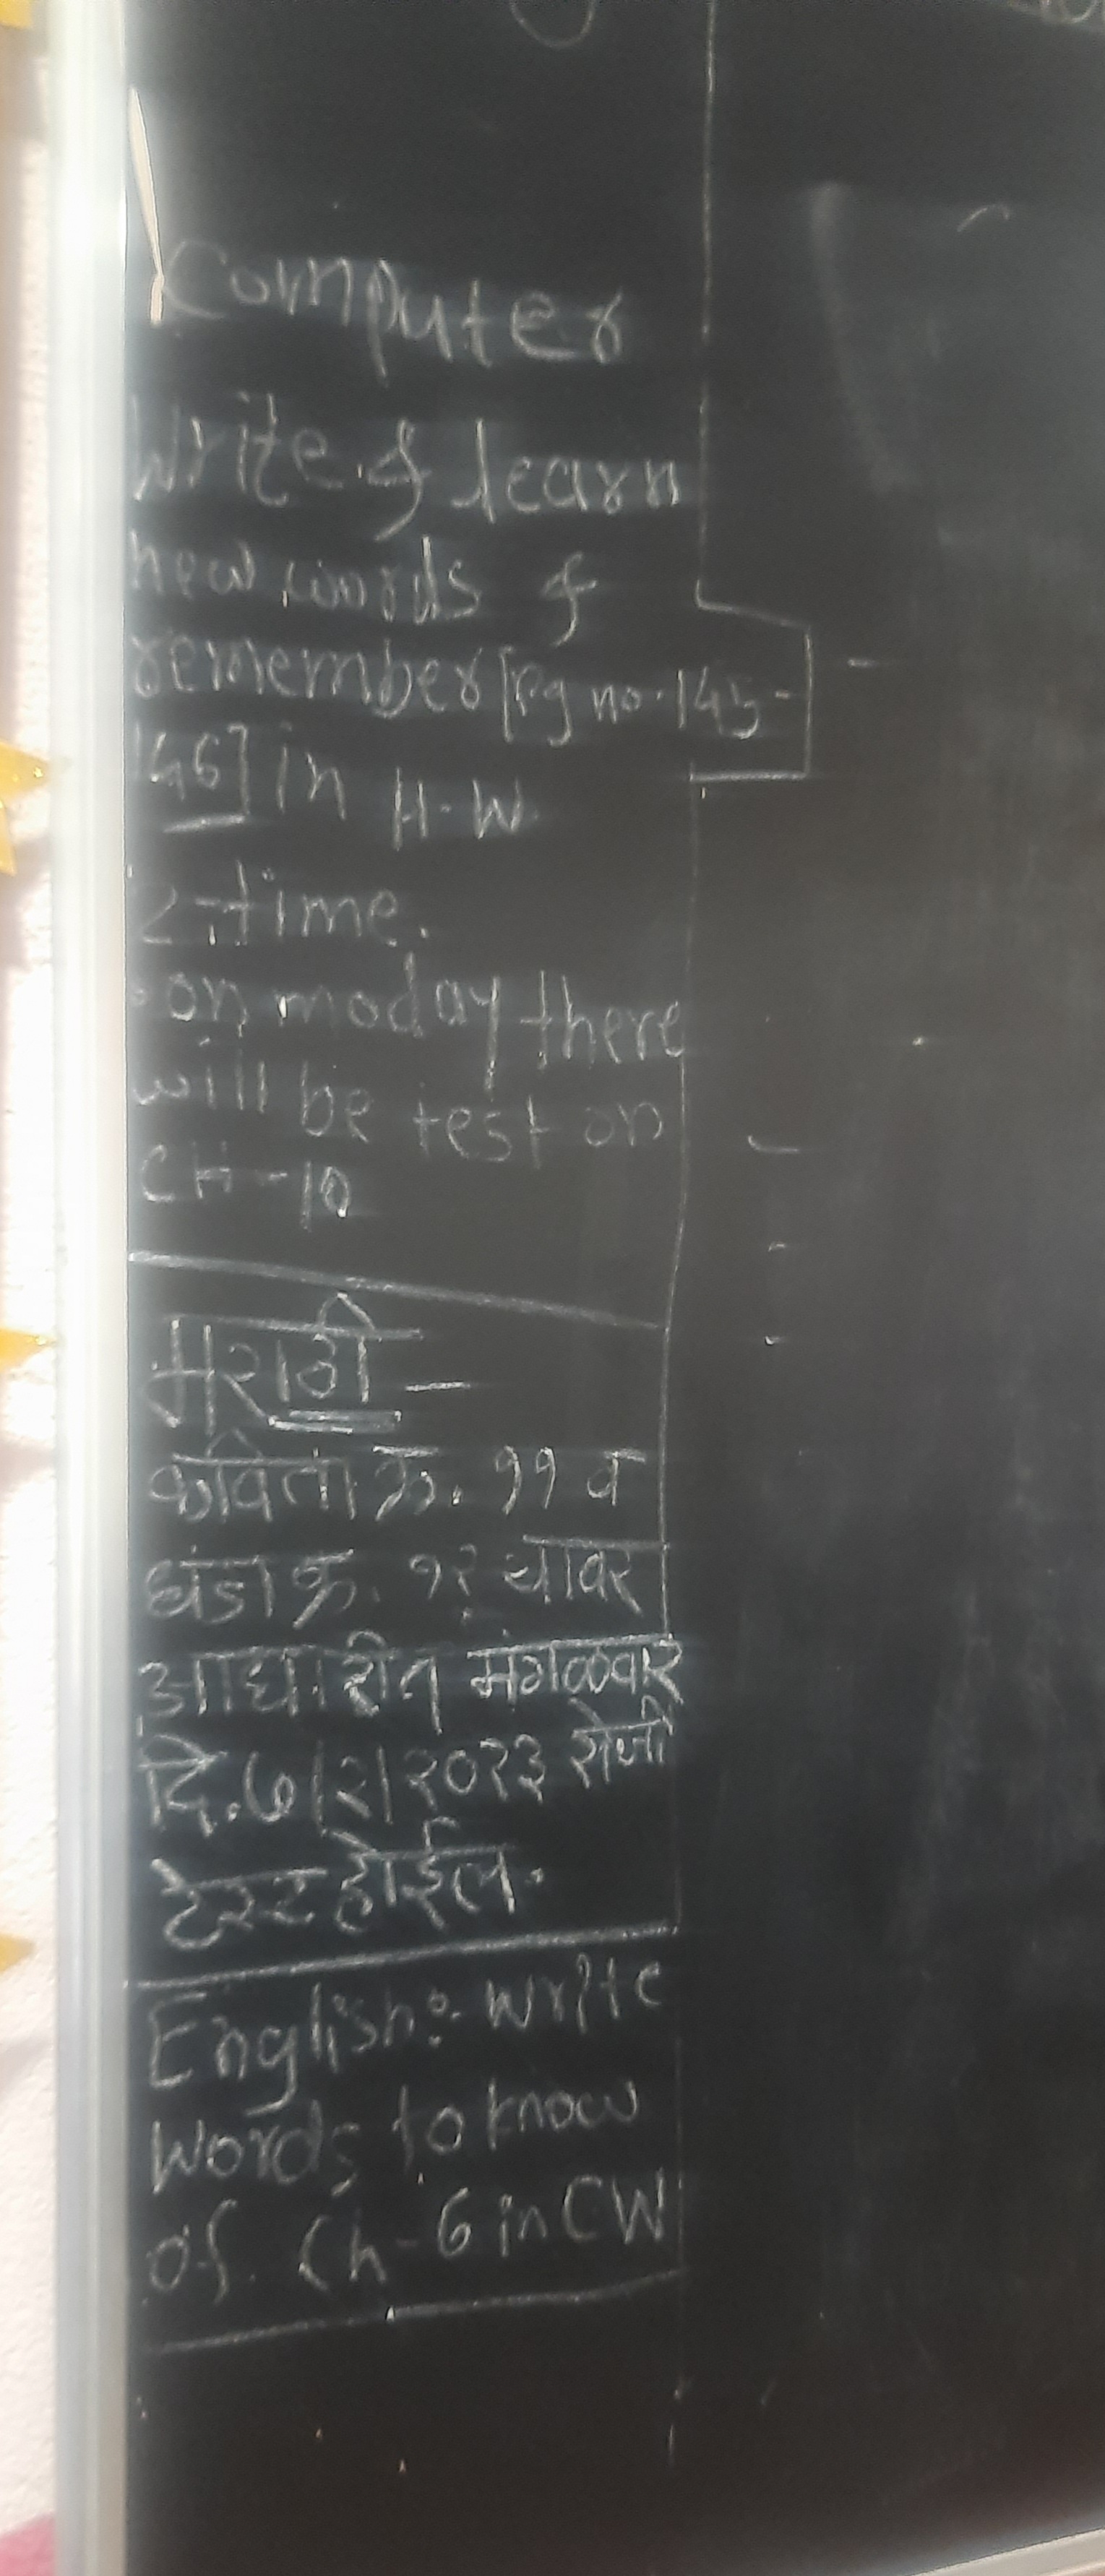 Computer
Write & learn
new words &
remember [Pg no. 145-
146] in H.W
2 time.
on moday there
will be test on
CH-10
मराठी -
कविता क्र. ११ व
धडा क्र. १२ यावर
आधारीत मंगळवार
दि. ७/२/२०२३ रोजी
टेस्ट होईल.
English:- Write
words to know
of Ch-6 in CW